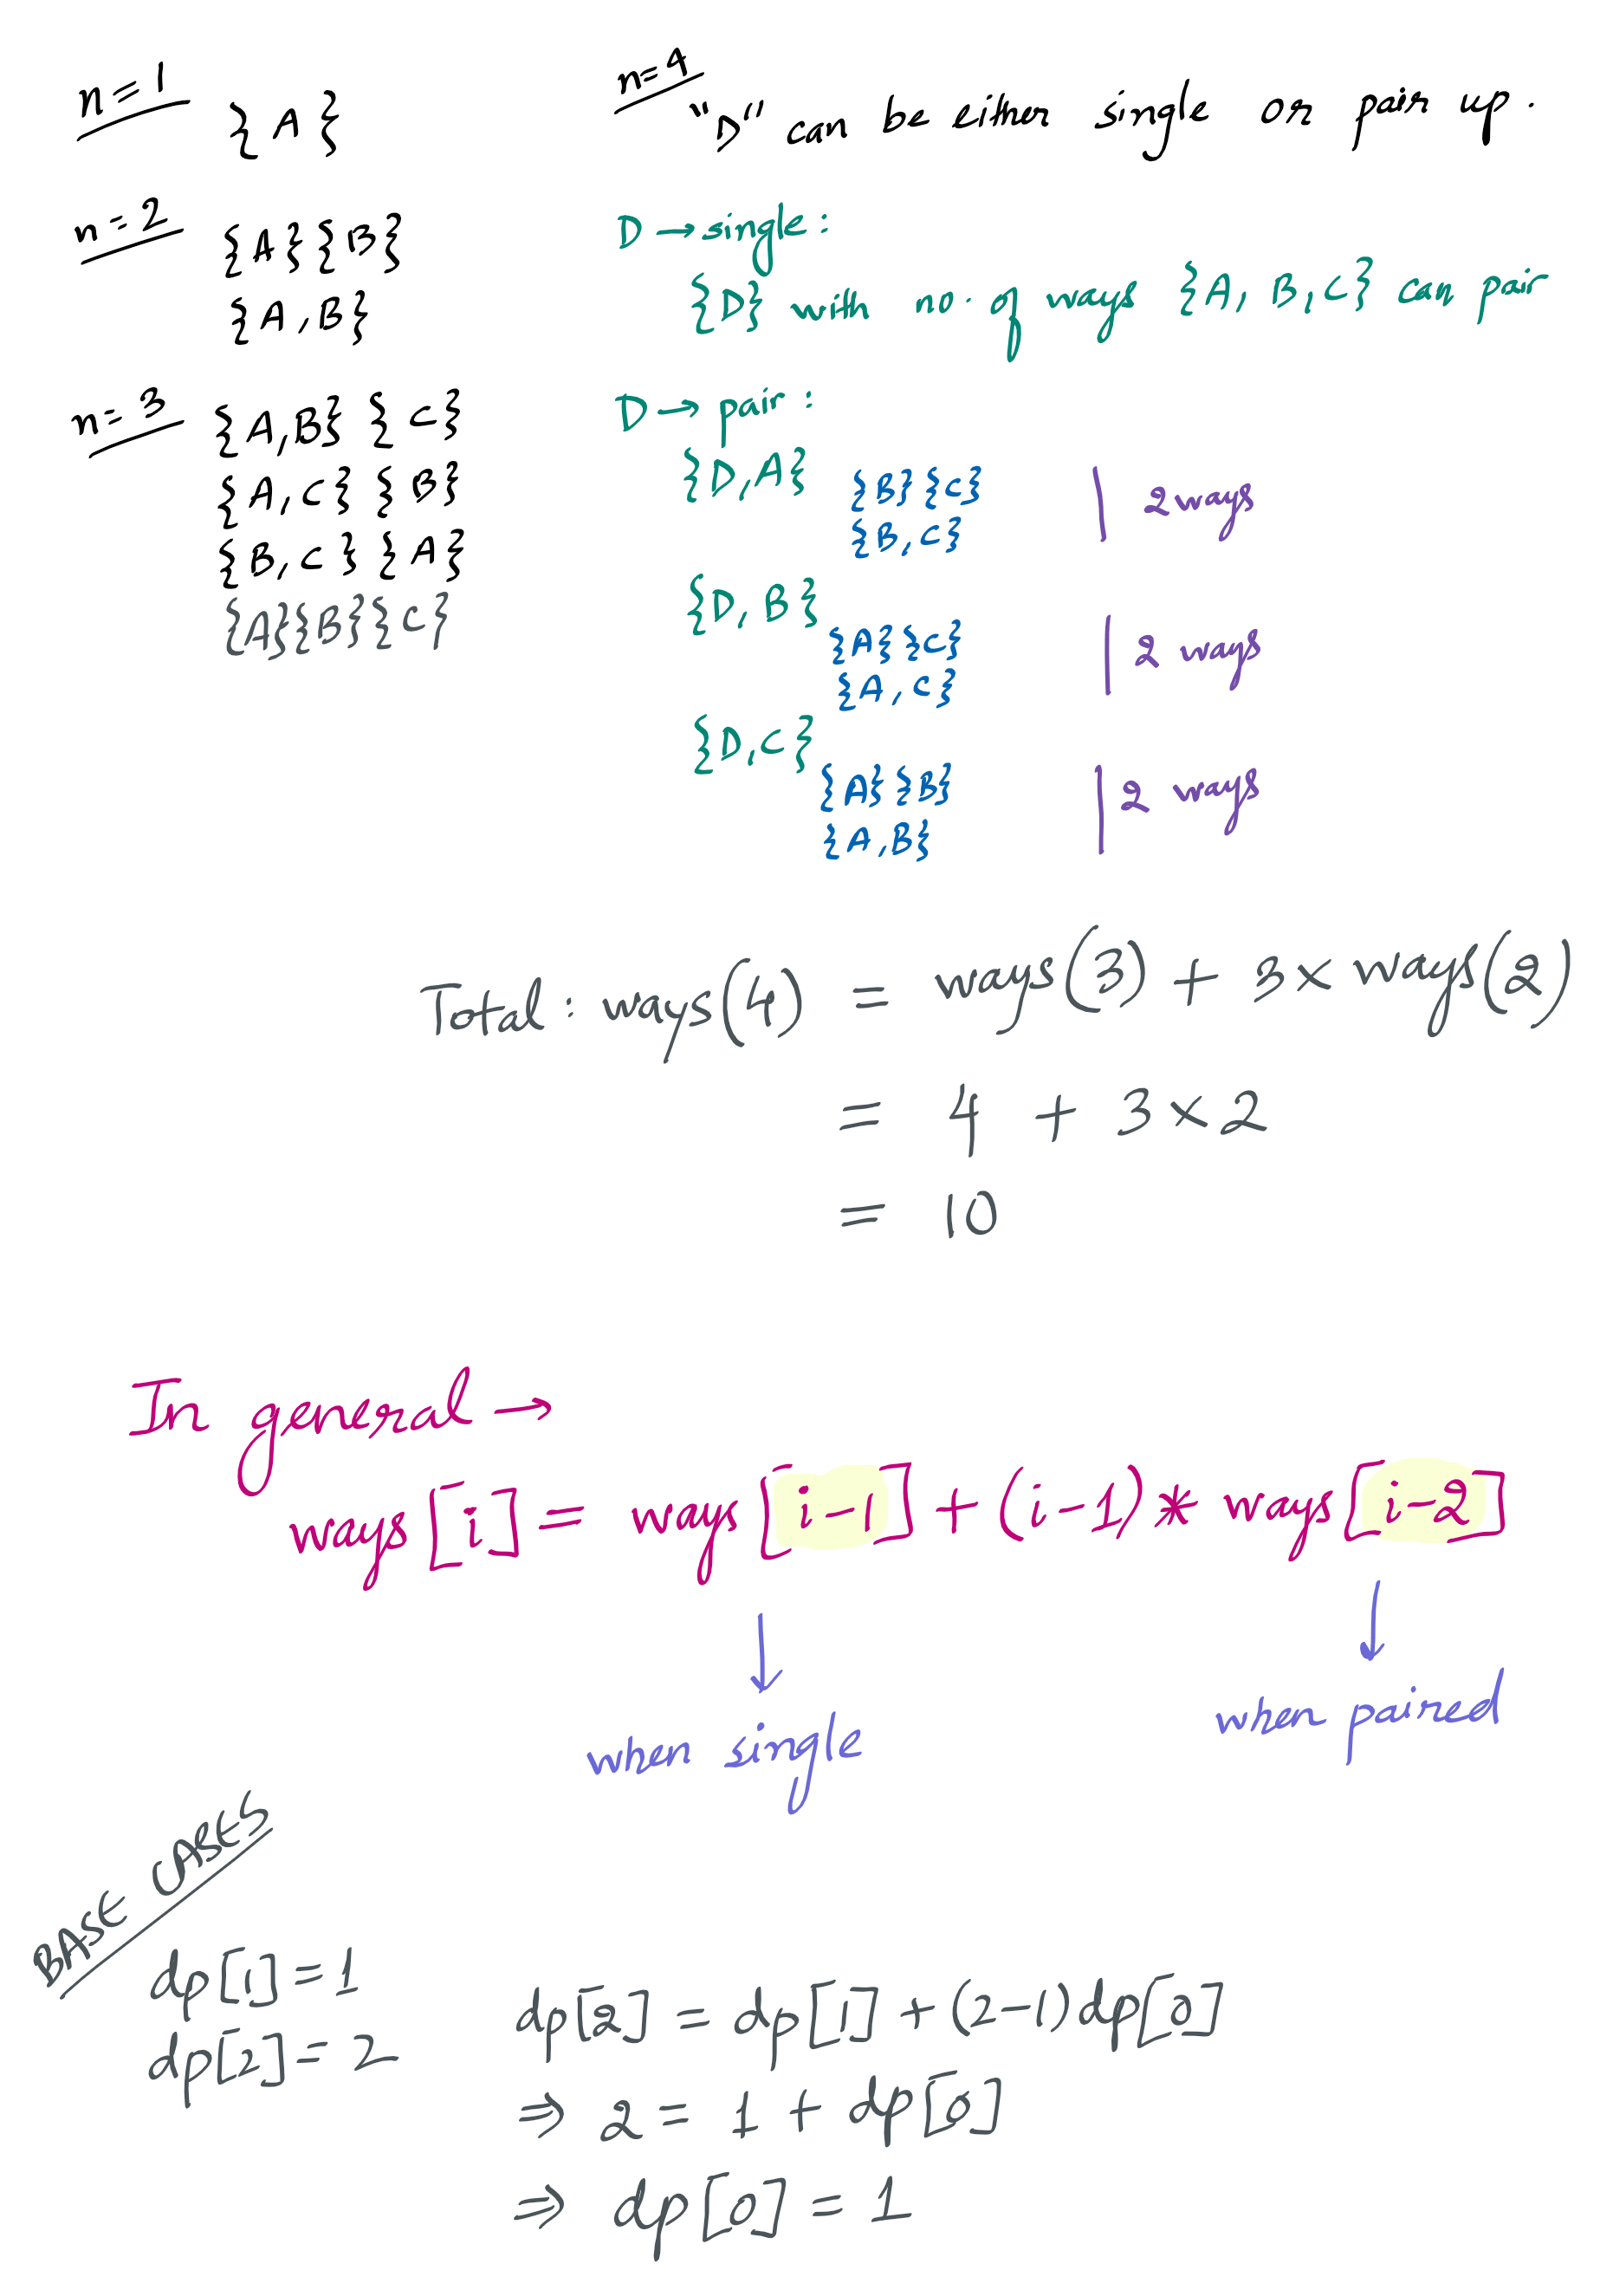 n=1
{A}
n=2
{A}{B}
{A,B}
n=3
{A,B} {C}
{A,C} {B}
{B,C} {A}
{A}{B}{C}
n=4
"D" can be either single or pair up.
D→single:
{D} with no. of ways {A, B, C} can pair
D→ pair:
{D,A}
{B}{C}
{B,C}
| 2 ways
{D,B}
{A}{C}
{A,C}
| 2 ways
{D,C}
{A}{B}
{A,B}
| 2 ways
Total: ways(4) = ways(3) + 3×ways(2)
= 4 + 3×2
= 10
In general →
ways[i] = ways[i-1] + (i-1) * ways[i-2]
↓ ↓
when single when paired
BASE CASES
dp[1]=1
dp[2]=2
dp[2] = dp[1] + (2-1)dp[0]
⇒ 2 = 1 + dp[0]
⇒ dp[0] = 1